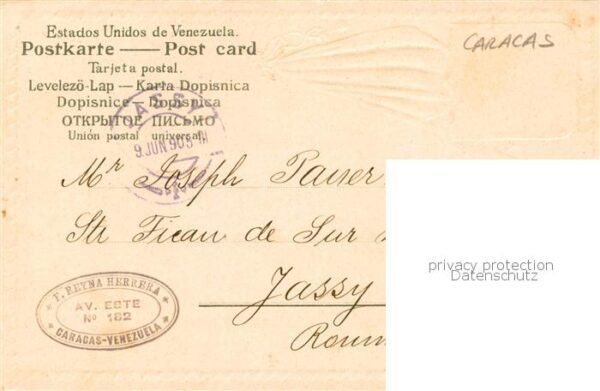 Estados Unidos de Venezuela.
Postkarte — Post card
Tarjeta postal.
Levelezö-Lap — Karta Dopisnica
Dopisnice — Dopisnica
ОТКРЫТОЕ ПИСЬМО
Unión postal universal.
CARACAS
JASSY
9 JUN 905
Mr Joseph
Str de Sur
Jassy
Roum
F. REYNA HERRERA
AV. ESTE
No 182
CARACAS-VENEZUELA
privacy protection
Datenschutz